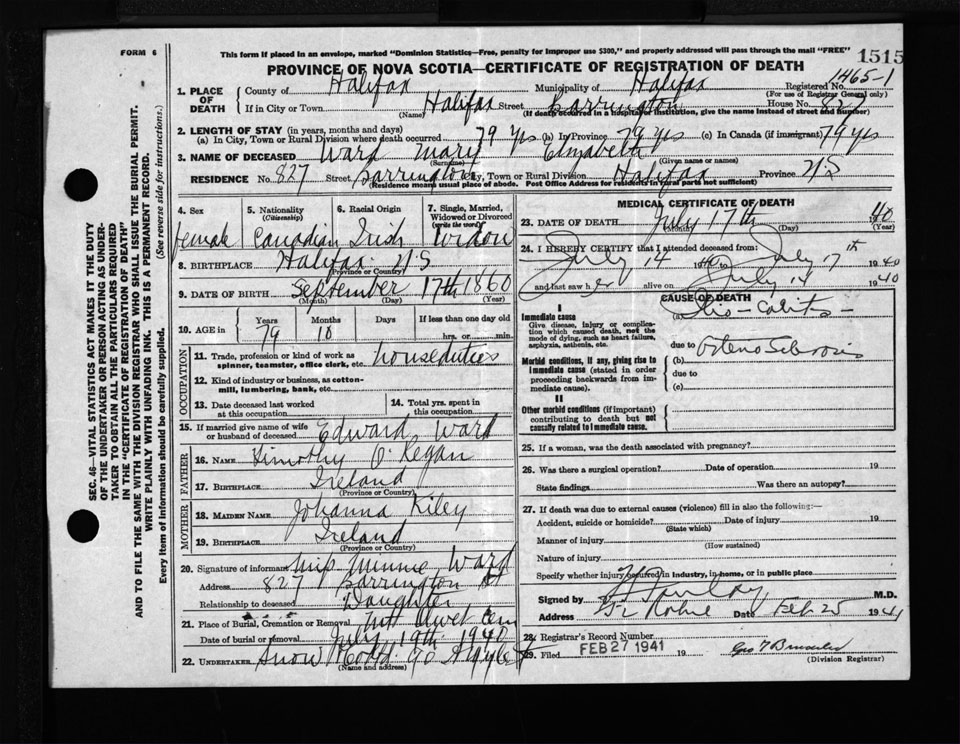 FORM 6
This form if placed in an envelope, marked "Dominion Statistics—Free, penalty for improper use $300," and properly addressed will pass through the mail "FREE"
1515
PROVINCE OF NOVA SCOTIA—CERTIFICATE OF REGISTRATION OF DEATH
1465-1
1. PLACE OF DEATH
County of Halifax Municipality of Halifax Registered No.
(For use of Registrar General only)
If in City or Town Halifax Street Barrington House No. 827
(Name) (If death occurred in a hospital or institution, give the name instead of street and number)
2. LENGTH OF STAY (in years, months and days)
(a) In City, Town or Rural Division where death occurred 79 yrs (b) In Province 79 yrs (c) In Canada (if immigrant) 79 yrs
3. NAME OF DECEASED Ward Mary Elizabeth
(Surname) (Given name or names)
RESIDENCE No. 827 Street Barrington City, Town or Rural Division Halifax Province N.S
(Residence means usual place of abode. Post Office Address for residents in rural parts not sufficient)
4. Sex 5. Nationality (Citizenship) 6. Racial Origin 7. Single, Married, Widowed or Divorced (write the word)
female Canadian Irish Widow
8. BIRTHPLACE Halifax N.S
(Province or Country)
9. DATE OF BIRTH September 17th 1860
(Month) (Day) (Year)
10. AGE in Years Months Days If less than one day old
79 10 hrs. or min.
OCCUPATION
11. Trade, profession or kind of work as spinner, teamster, office clerk, etc. houseduties
12. Kind of industry or business, as cotton-mill, lumbering, bank, etc.
13. Date deceased last worked at this occupation
14. Total yrs. spent in this occupation
15. If married give name of wife or husband of deceased Edward Ward
FATHER
16. NAME Timothy O'Regan
17. BIRTHPLACE Ireland
(Province or Country)
MOTHER
18. MAIDEN NAME Johanna Kiley
19. BIRTHPLACE Ireland
(Province or Country)
20. Signature of informant Miss Minnie Ward
Address 827 Barrington St
Relationship to deceased Daughter
21. Place of Burial, Cremation or Removal Mt Olivet Cem
Date of burial or removal July 19th 1940
22. UNDERTAKER Snow & Co Ltd. 90 Argyle St
(Name and address)
MEDICAL CERTIFICATE OF DEATH
23. DATE OF DEATH July 17th 1940
(Month) (Day) (Year)
24. I HEREBY CERTIFY that I attended deceased from:
July 14 1940 to July 17th 1940
and last saw her alive on July 14 1940
CAUSE OF DEATH
Immediate cause
Give disease, injury or complication which caused death, not the mode of dying, such as heart failure, asphyxia, asthenia, etc.
(a) Ilio-Colitis
due to
Morbid conditions, if any, giving rise to immediate cause (stated in order proceeding backwards from immediate cause).
(b)
due to
(c)
II
Other morbid conditions (if important) contributing to death but not causally related to immediate cause.
25. If a woman, was the death associated with pregnancy?
26. Was there a surgical operation? Date of operation 19
State findings Was there an autopsy?
27. If death was due to external causes (violence) fill in also the following:—
Accident, suicide or homicide? Date of injury 19
(State which)
Manner of injury
(How sustained)
Nature of injury
Specify whether injury occurred in industry, in home, or in public place
Signed by M.D.
Address Date Feb 25 1941
28. Registrar's Record Number
29. Filed FEB 27 1941 19
(Division Registrar)
SEC. 46—VITAL STATISTICS ACT MAKES IT THE DUTY
OF THE UNDERTAKER OR PERSON ACTING AS UNDER-
TAKER TO OBTAIN ALL THE PARTICULARS REQUIRED
IN THE "CERTIFICATE OF REGISTRATION OF DEATH"
AND TO FILE THE SAME WITH THE DIVISION REGISTRAR WHO SHALL ISSUE THE BURIAL PERMIT.
WRITE PLAINLY WITH UNFADING INK. THIS IS A PERMANENT RECORD.
Every item of information should be carefully supplied. (See reverse side for instructions.)